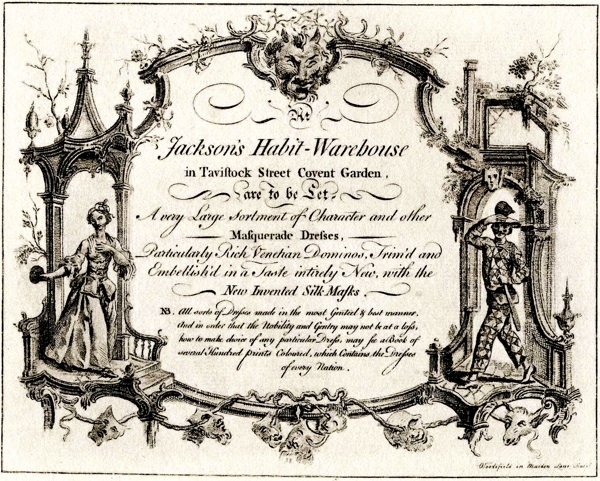 At
Jackson's Habit-Warehouse
in Taviſtock Street Covent Garden,
are to be Let
A very Large Sortment of Character and other
Maſquerade Dreſses,
Particularly Rich Venetian Dominos, Trim'd and
Embelliſh'd in a Taste intirely New, with the
New Invented Silk Maſks
NB. All sorts of Dreſses made in the most Genteel & best manner,
And in order that the Nobility and Gentry may not be at a loſs,
how to make choice of any particular Dreſs, may ſee a Book of
several Hundred prints Coloured, which Contains the Dreſses
of every Nation.
in Maiden Lane